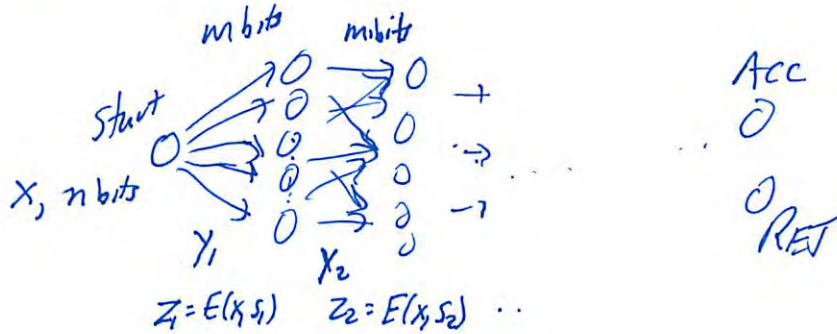 m bits m bits
Start
Acc
X, n bits
Y₁ Y₂
REJ
Z₁=E(X,S₁) Z₂=E(X,S₂) ..